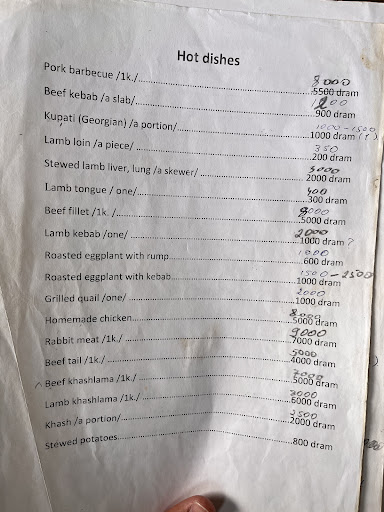 Hot dishes
8000
Pork barbecue /1k./.....5500 dram
1200
Beef kebab /a slab/.....900 dram
1000-1500
Kupati (Georgian) /a portion/.....1000 dram (1)
350
Lamb loin /a piece/.....200 dram
3000
Stewed lamb liver, lung /a skewer/.....2000 dram
400
Lamb tongue / one/.....300 dram
8000
Beef fillet /1k. /.....5000 dram
2000
Lamb kebab /one/.....1000 dram ?
1000
Roasted eggplant with rump.....600 dram
1500-2500
Roasted eggplant with kebab.....1000 dram
2000
Grilled quail /one/.....1000 dram
8000
Homemade chicken.....5000 dram
9000
Rabbit meat /1k./.....7000 dram
5000
Beef tail /1k./.....4000 dram
7000
Beef khashlama /1k./.....5000 dram
Lamb khashlama /1k./.....6000 dram
2500
Khash /a portion/.....2000 dram
Stewed potatoes.....800 dram